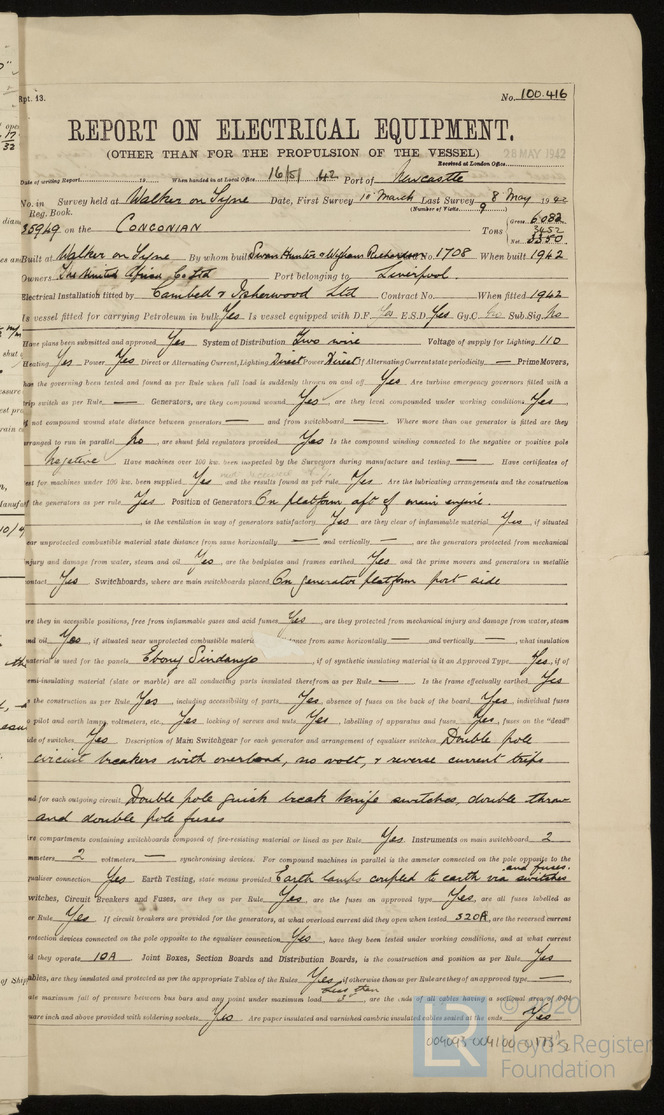 Rpt. 13.
No. 100.416
REPORT ON ELECTRICAL EQUIPMENT.
(OTHER THAN FOR THE PROPULSION OF THE VESSEL)
28 MAY 1942
Received at London Office
Date of writing Report 19 When handed in at Local Office 16/5/ 42 Port of Newcastle
No. in Survey held at Walker on Tyne Date, First Survey 10 March Last Survey 8 May 1942
Reg. Book. (Number of Visits 9)
35949 on the CONCONIAN Tons Gross 6082
3452
Net 3350
Built at Walker on Tyne By whom built Swan Hunter & Wigham Richardson No. 1708 When built 1942
Owners The United Africa Co Ltd Port belonging to Liverpool.
Electrical Installation fitted by Cambell & Isherwood Ltd Contract No. When fitted 1942
Is vessel fitted for carrying Petroleum in bulk Yes Is vessel equipped with D.F. Yes E.S.D. Yes Gy.C. No Sub.Sig. No
Have plans been submitted and approved Yes System of Distribution Two wire Voltage of supply for Lighting 110
Heating Yes Power Yes Direct or Alternating Current, Lighting Direct Power Direct If Alternating Current state periodicity — Prime Movers,
has the governing been tested and found as per Rule when full load is suddenly thrown on and off Yes Are turbine emergency governors fitted with a
trip switch as per Rule — Generators, are they compound wound Yes, are they level compounded under working conditions Yes,
if not compound wound state distance between generators — and from switchboard — Where more than one generator is fitted are they
arranged to run in parallel No, are shunt field regulators provided Yes Is the compound winding connected to the negative or positive pole
Negative Have machines over 100 kw. been inspected by the Surveyors during manufacture and testing — Have certificates of
test for machines under 100 kw. been supplied Yes and the results found as per rule Yes Are the lubricating arrangements and the construction
of the generators as per rule Yes Position of Generators On platform aft of main engine.
, is the ventilation in way of generators satisfactory Yes are they clear of inflammable material Yes, if situated
near unprotected combustible material state distance from same horizontally — and vertically —, are the generators protected from mechanical
injury and damage from water, steam and oil Yes, are the bedplates and frames earthed Yes and the prime movers and generators in metallic
contact Yes Switchboards, where are main switchboards placed On generator platform port side
are they in accessible positions, free from inflammable gases and acid fumes Yes, are they protected from mechanical injury and damage from water, steam
and oil Yes, if situated near unprotected combustible from same horizontally — and vertically —, what insulation
material is used for the panels Ebony Sindanyo, if of synthetic insulating material is it an Approved Type Yes, if of
semi-insulating material (slate or marble) are all conducting parts insulated therefrom as per Rule — Is the frame effectually earthed Yes
is the construction as per Rule Yes, including accessibility of parts Yes, absence of fuses on the back of the board Yes, individual fuses
to pilot and earth lamps, voltmeters, etc. Yes locking of screws and nuts Yes, labelling of apparatus and fuses Yes, fuses on the "dead"
side of switches Yes Description of Main Switchgear for each generator and arrangement of equaliser switches Double pole
circuit breakers with overload, no volt, & reverse current trips
and for each outgoing circuit Double pole quick break knife switches, double throw
and double pole fuses
Are compartments containing switchboards composed of fire-resisting material or lined as per Rule Yes Instruments on main switchboard 2
ammeters 2 voltmeters — synchronising devices. For compound machines in parallel is the ammeter connected on the pole opposite to the
equaliser connection Yes Earth Testing, state means provided Earth lamps coupled to earth via switches and fuses.
Switches, Circuit Breakers and Fuses, are they as per Rule Yes, are the fuses an approved type Yes, are all fuses labelled as
per Rule Yes If circuit breakers are provided for the generators, at what overload current did they open when tested 320A, are the reversed current
protection devices connected on the pole opposite to the equaliser connection Yes, have they been tested under working conditions, and at what current
did they operate 10A Joint Boxes, Section Boards and Distribution Boards, is the construction and position as per Rule Yes
Cables, are they insulated and protected as per the appropriate Tables of the Rules Yes, if otherwise than as per Rule are they of an approved type —,
state maximum fall of pressure between bus bars and any point under maximum load less than 3, are the ends of all cables having a sectional area of 0·01
square inch and above provided with soldering sockets Yes Are paper insulated and varnished cambric insulated cables sealed at the ends Yes
© 2020
LR
Lloyd's Register
Foundation
004093-004100-0173 1/2